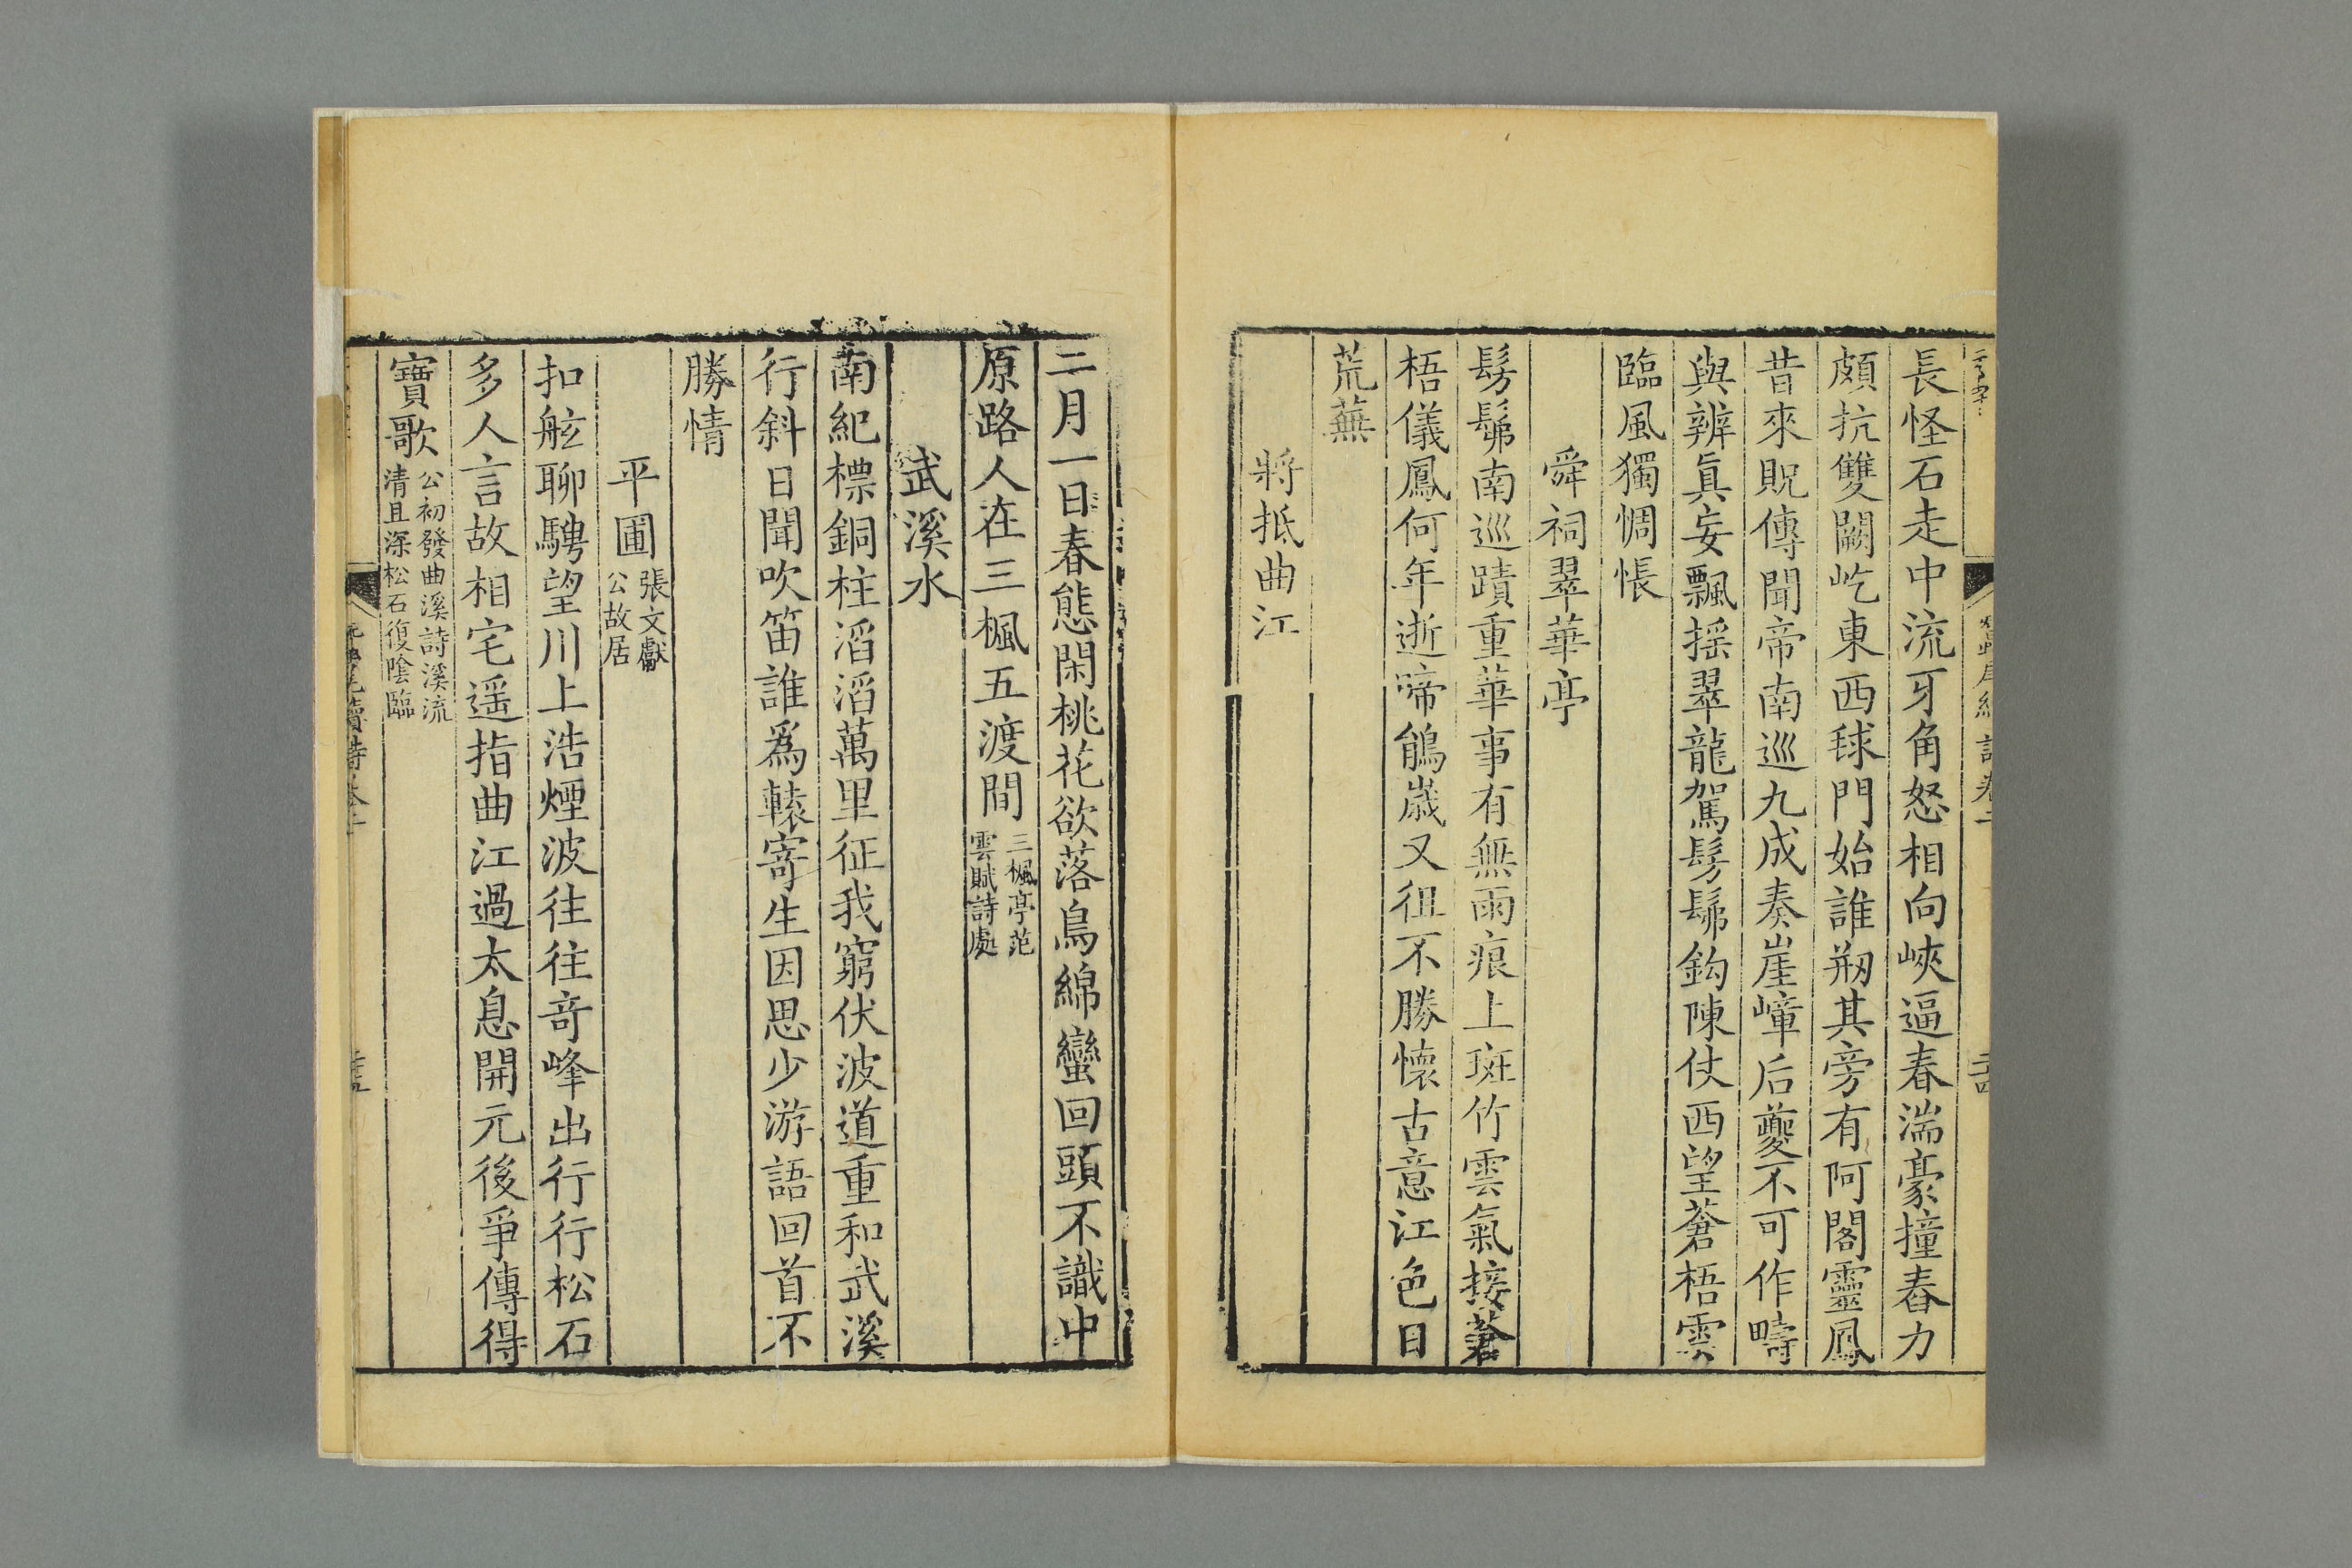 長怪石走中流牙角怒相向峽逼春湍豪撞舂力
頗抗雙闕屹東西球門始誰剏其旁有阿閣靈鳳
昔來貺傳聞帝南巡九成奏崖嶂后夔不可作疇
與辨眞妄飄摇翠龍駕髣髴鈎陳仗西望蒼梧雲
臨風獨惆悵
舜祠翠華亭
髣髴南巡蹟重華事有無雨痕上斑竹雲氣接蒼
梧儀鳳何年逝啼鵑歲又徂不勝懷古意江色日
荒蕪
將抵曲江
二月一日春態閑桃花欲落鳥綿蠻回頭不識中
原路人在三楓五渡間三楓亭范
雲賦詩處
武溪水
南紀標銅柱滔滔萬里征我窮伏波道重和武溪
行斜日聞吹笛誰爲轅寄生因思少游語回首不
勝情
平圃張文獻
公故居
扣舷聊騁望川上浩煙波往往竒峰出行行松石
多人言故相宅遥指曲江過太息開元後爭傳得
寶歌公初發曲溪詩溪流
清且深松石復陰臨